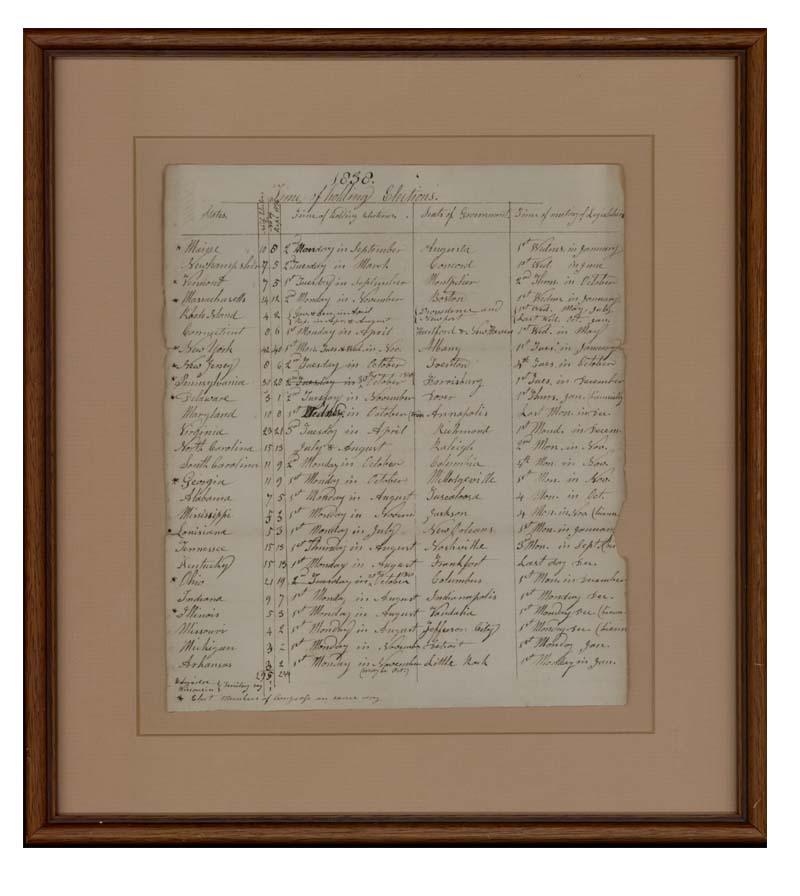 1838.
Time of holding Elections.
States. Time of holding elections. Seats of Government Time of meeting of Legislature
* Maine 10 8 2nd Monday in September Augusta 1st Wednes. in January
New hampshire 7 5 2 Tuesday in March Concord 1st Wed. in June
* Vermont 7 5 1st Tuesday in September Montpelier 2nd Thurs. in October
* Massachusetts 14 12 2nd Monday in November Boston 1st Wednes. in January
Rhode Island 4 2 { Gov & Sen. in April { Rep. in Apr & August { Providence and { Newport { 1st Wed. May, July { Last Wed. Oct. Jany
Connecticut 8 6 1st Monday in April Hartford & New Haven 1st Wed. in May
* New York 42 40 1st Mon. Tues & Wed. in Nov. Albany 1st Tues. in January
* New Jersey 8 6 2nd Tuesday in October Trenton 4th Tues. in October
* Pennsylvania 30 28 2nd Tuesday in October Harrisburg 1st Tues. in December
* Delaware 3 1 2nd Tuesday in November Dover 1st Thurs. Jan. (biennially
Maryland 10 8 1st Wednes in October Annapolis Last Mon. in Dec.
Virginia 23 21 3d Tuesday in April Richmond 1st Mond. in Decem
North Carolina 15 13 July & August Raleigh 2nd Mon. in Nov.
South Carolina 11 9 2nd Monday in October Columbia 4th Mon. in Nov.
* Georgia 11 9 1st Monday in October Milledgeville 1st Mon. in Nov.
Alabama 7 5 1st Monday in August Tuscaloosa 4 Mon. in Oct.
Mississippi 1st Monday in Novem Jackson 4 Mon. in Nov (bienn
* Louisiana 5 3 1st Monday in July New Orleans 1st Mon. in January
Tennessee 15 13 1st Thursday in August Nashville 3d Mon. in Sept. (bie
Kentucky 15 13 1st Monday in August Frankfort Last day Dec.
* Ohio 21 19 2nd Tuesday in October Columbus 1st Mon. in December
Indiana 9 7 1st Monday in August Indianapolis 1st Monday Dec.
* Illinois 5 3 1st Monday in August Vandalia 1st Monday Dec (bienn
Missouri 4 2 1st Monday in August Jefferson City 1st Monday Dec (bienn
Michigan 3 1st Monday in Novembe Detroit 1st Monday Jan.
Arkansas 3 1st Monday in November Little Rock 1st Monday in Jan.
Wisconsin
* Elect Members of Congress on same day